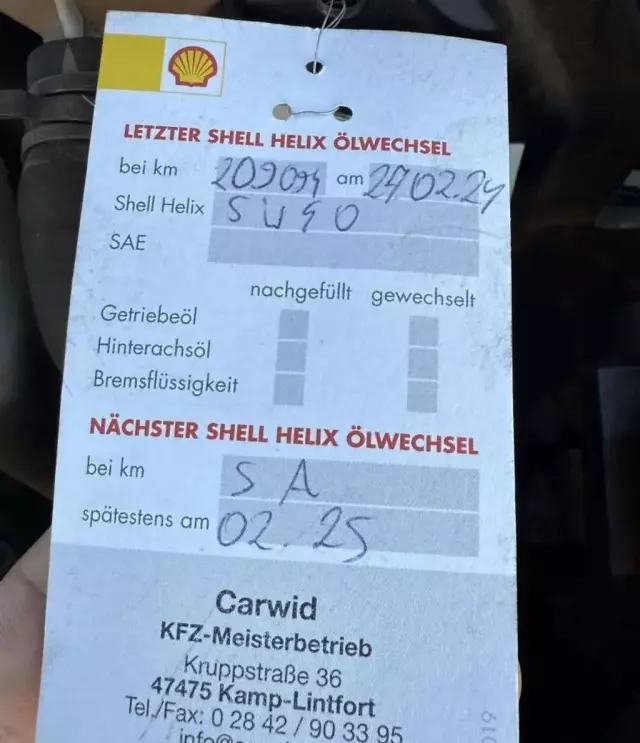 LETZTER SHELL HELIX ÖLWECHSEL
bei km 209094 am 27.02.24
Shell Helix 5W40
SAE
nachgefüllt gewechselt
Getriebeöl
Hinterachsöl
Bremsflüssigkeit
NÄCHSTER SHELL HELIX ÖLWECHSEL
bei km SA
spätestens am 02.25
Carwid
KFZ-Meisterbetrieb
Kruppstraße 36
47475 Kamp-Lintfort
Tel./Fax: 0 28 42 / 90 33 95